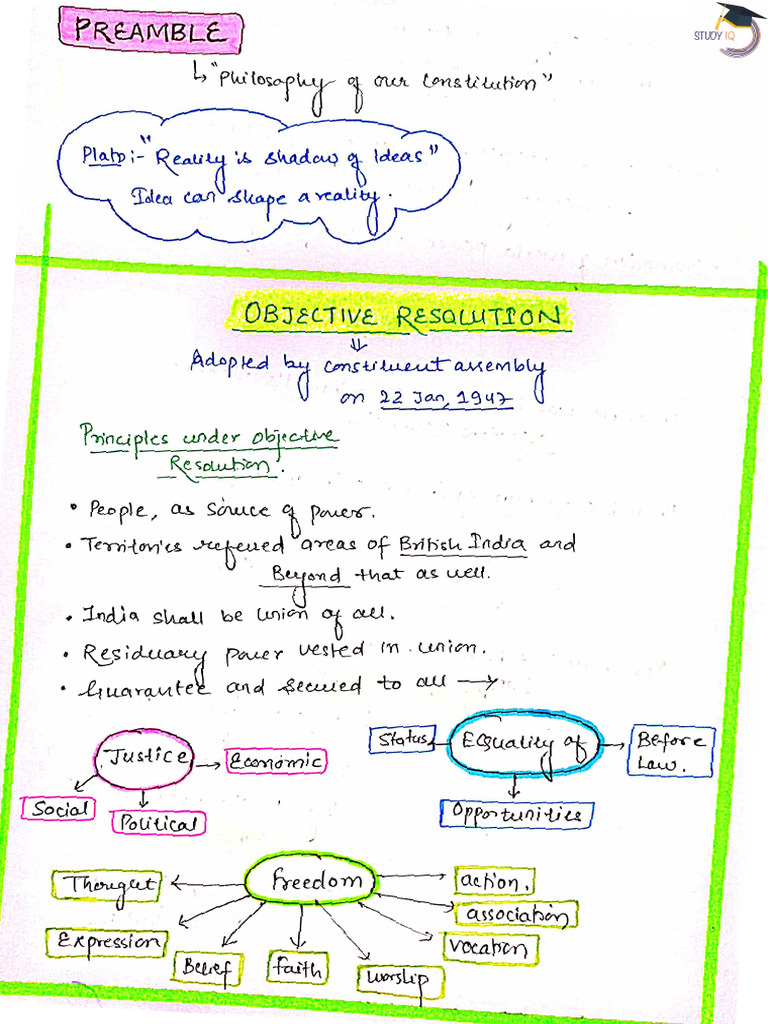 PREAMBLE
STUDY IQ
↳ "Philosophy of our Constitution"
Plato:- "Reality is shadow of Ideas"
Idea can shape a reality.
OBJECTIVE RESOLUTION
Adopted by constituent assembly
on 22 Jan, 1947
Principles under objective
Resolution.
• People, as source of power.
• Territories referred areas of British India and
Beyond that as well.
• India shall be union of all.
• Residuary power vested in union.
• Guarantee and secured to all →
Justice
Economic
Social
Political
Status
Equality of
Before
Law.
Opportunities
Freedom
Thought
Expression
Belief
faith
worship
vocation
association
action.